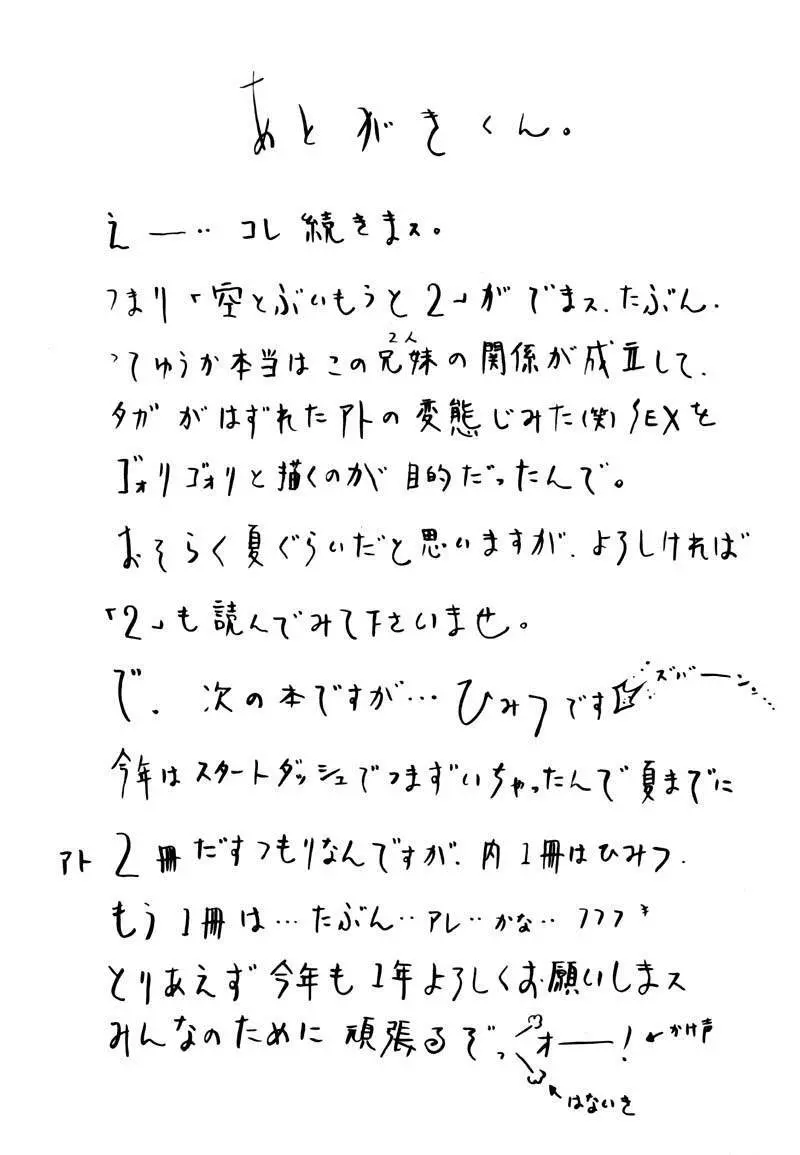 あとがきくん。
え——‥ コレ続きまス。
つまり「空とぶいもうと2」がでまス、たぶん。
つてゆうか本当はこの兄妹の関係が成立して、
2人
タガがはずれたアトの変態じみた(笑)SEXを
ゴォリゴォリと描くのが目的だったんで。
おそらく夏ぐらいだと思いますが、よろしければ
「2」も読んでみて下さいませ。
で、次の本ですが…ひみつです
ズバーン。…
今年はスタートダッシュでつまずいちゃったんで夏までに
アト2冊だすつもりなんですが、内1冊はひみつ。
もう1冊は…たぶん‥アレ‥かな‥フフフ
とりあえず今年も1年よろしくお願いしまス
みんなのために頑張るぞっオ——!
かけ声
はないき